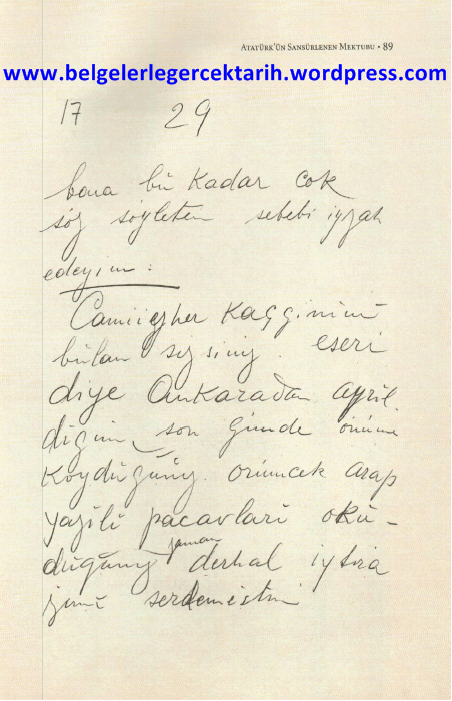 ATATÜRK'ÜN SANSÜRLENEN MEKTUBU • 89
www.belgelerlegercektarih.wordpress.com
17 29
bana bu kadar çok
söz söyleten sebebi iyzah
edeyim:
Camiiezher kaçgınını
bulan sizsiniz. eseri
diye Ankaradan ayrıl
dığım son günde önüme
koyduğunuz. örümcek arap
yazılı paçavları oku-
duğunuz zaman derhal iytira
zımı serdemiştim